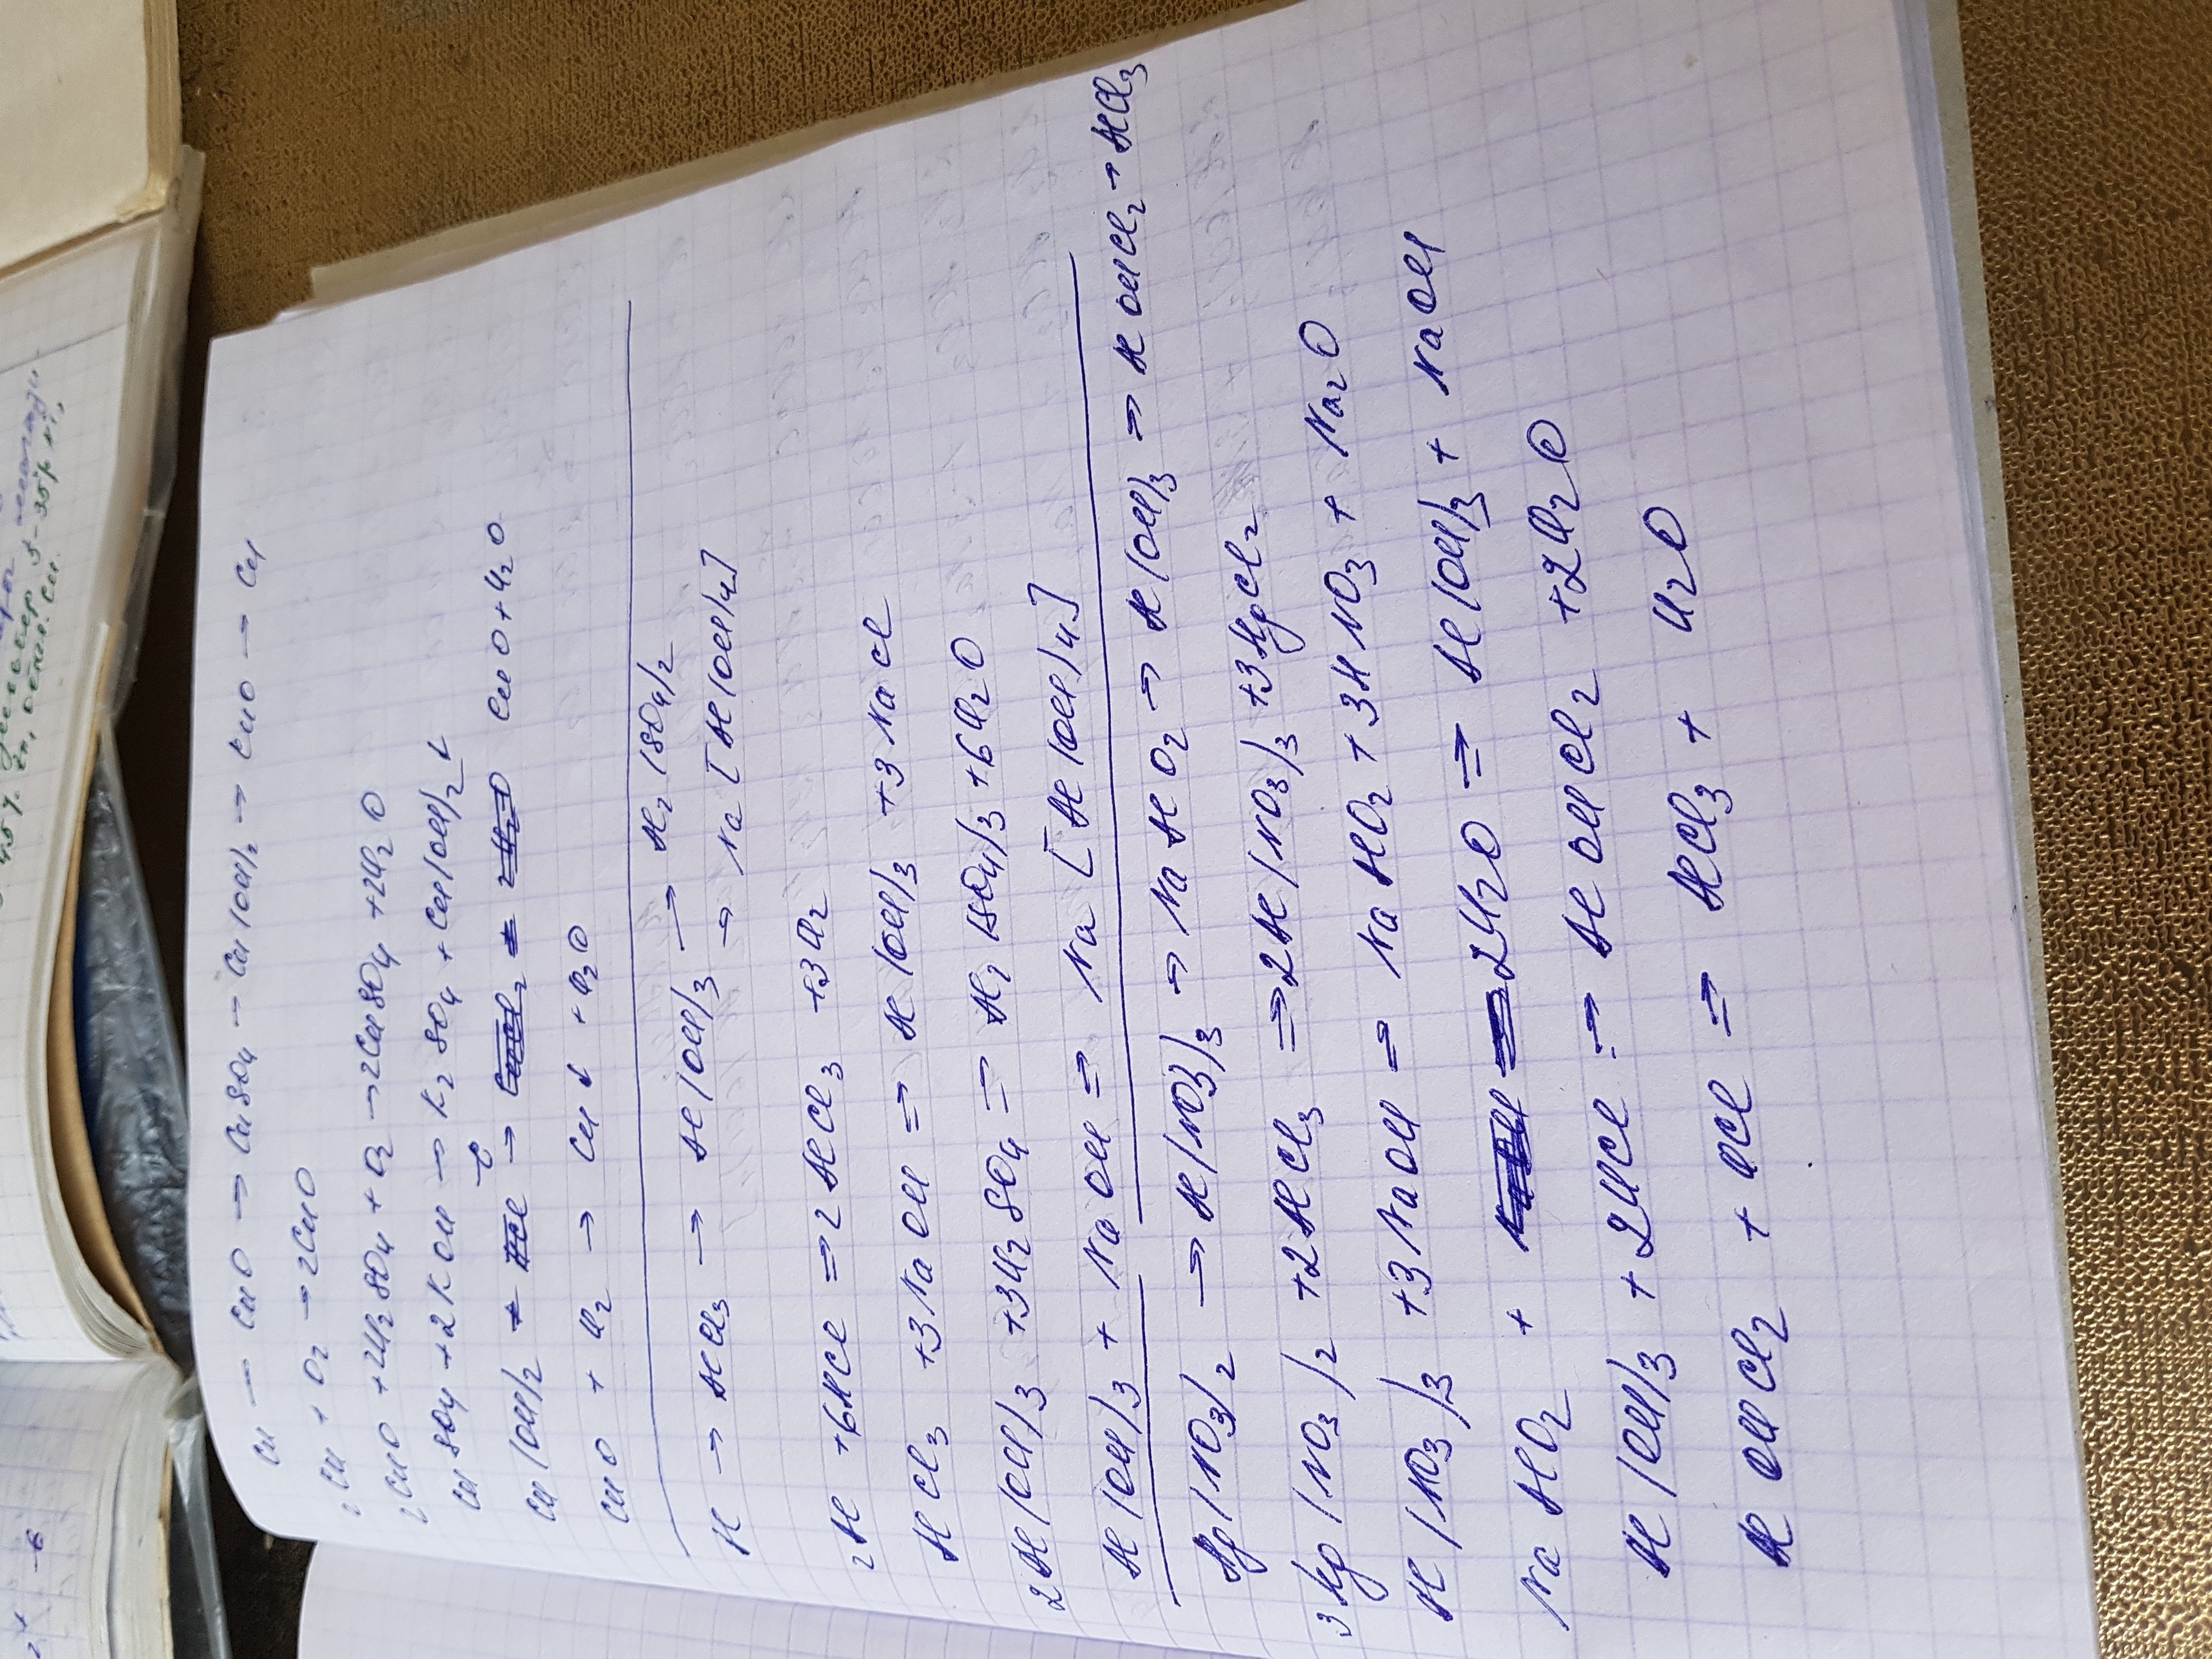 Cu → CuO → CuSO4 → Cu(OH)2 → CuO → Cu
2Cu + O2 → 2CuO
2CuO + 2H2SO4 + O2 → 2CuSO4 + 2H2O
CuSO4 + 2KOH → K2SO4 + Cu(OH)2↓
Cu(OH)2 t→ CuO + H2O
CuO + H2 → Cu↓ + H2O
Al → AlCl3 → Al(OH)3 → Al2(SO4)2
→ Na[Al(OH)4]
2Al + 6HCl = 2AlCl3 + 3H2
AlCl3 + 3NaOH = Al(OH)3 + 3NaCl
2Al(OH)3 + 3H2SO4 = Al2(SO4)3 + 6H2O
Al(OH)3 + NaOH = Na[Al(OH)4]
Mg(NO3)2 → Al(NO3)3 → NaAlO2 → Al(OH)3 → AlOHCl2 → AlCl3
3Mg(NO3)2 + 2AlCl3 = 2Al(NO3)3 + 3MgCl2
Al(NO3)3 + 3NaOH = NaAlO2 + 3HNO3 + Na2O
NaAlO2 + 2H2O = Al(OH)3 + NaOH
Al(OH)3 + 2HCl = AlOHCl2 + 2H2O
AlOHCl2 + HCl = AlCl3 + H2O